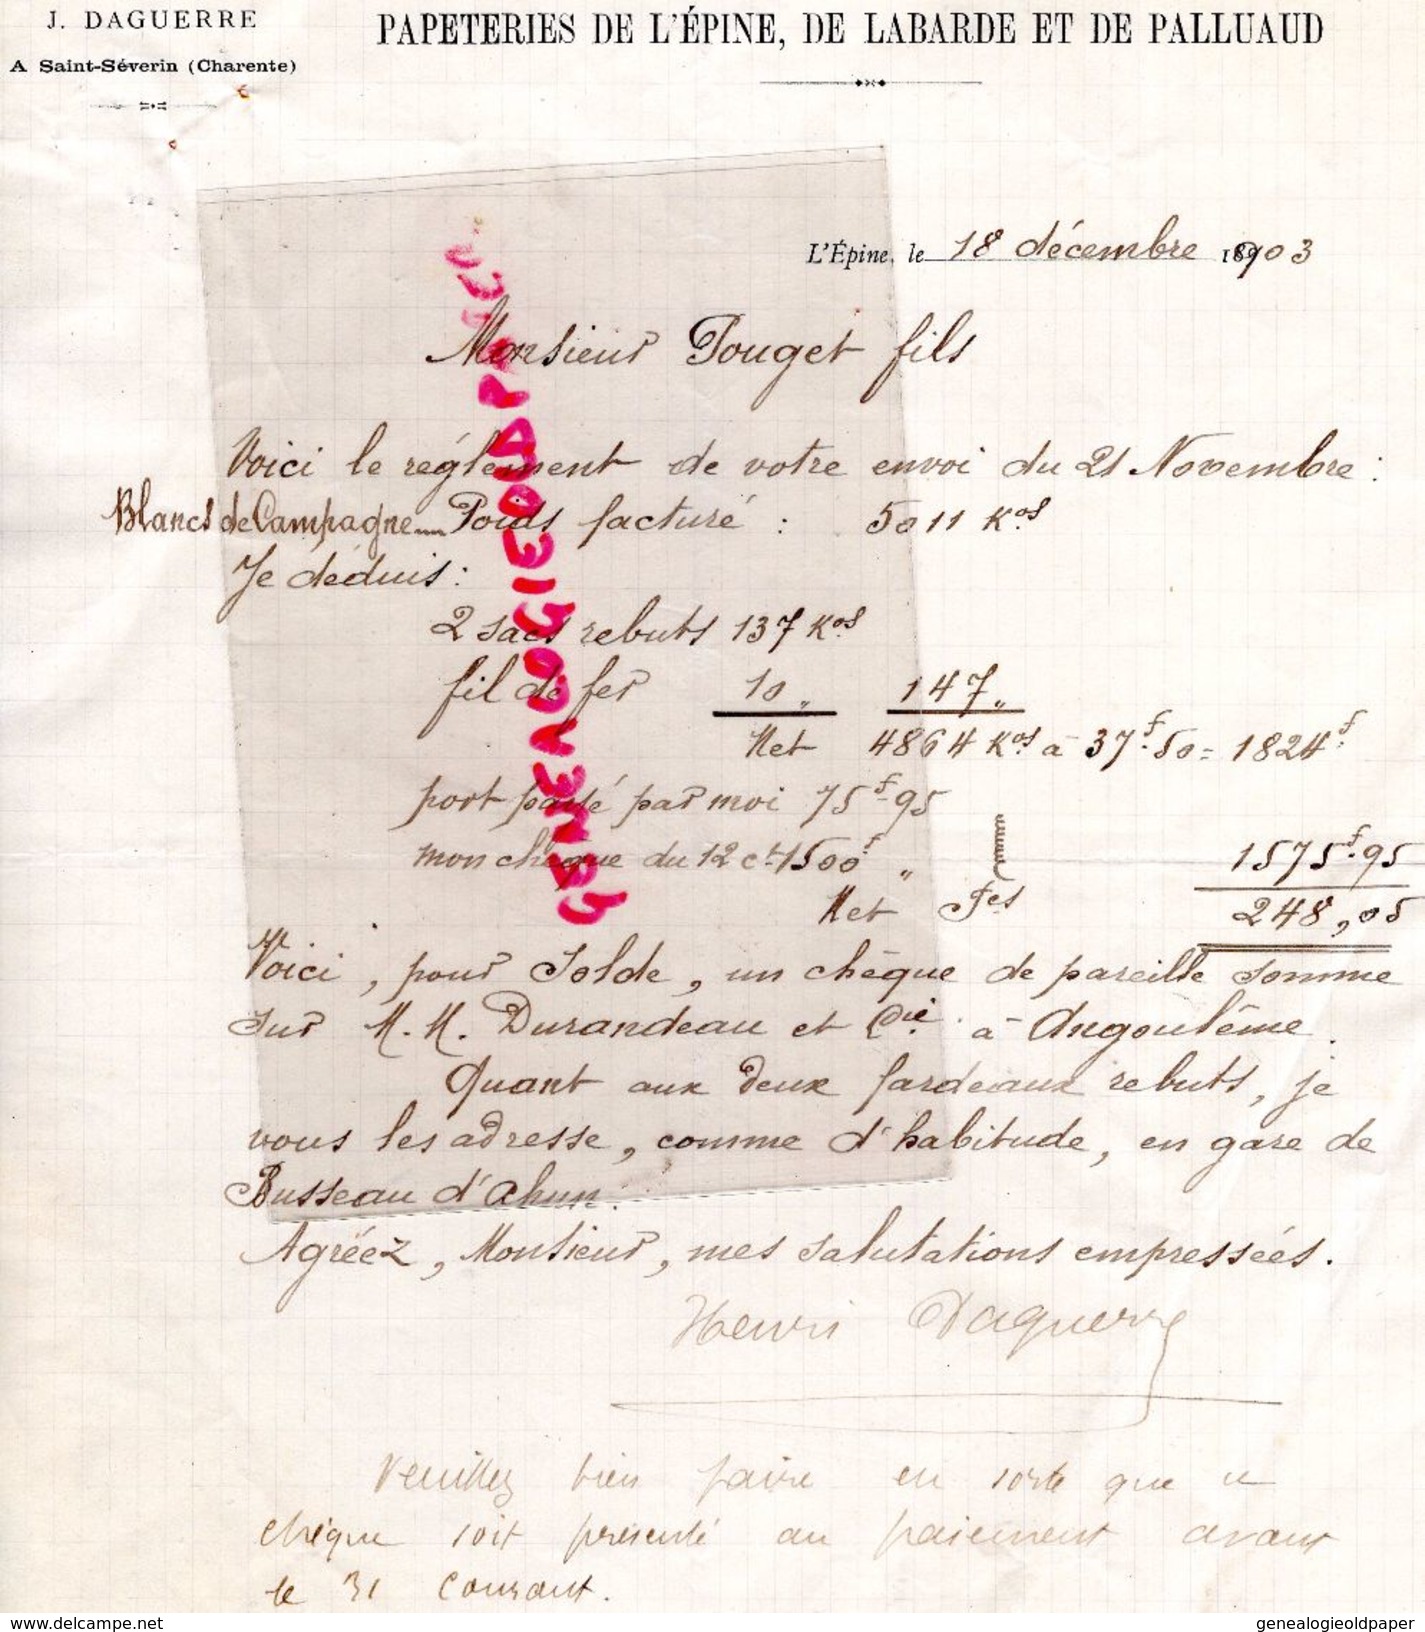 J. DAGUERRE
A Saint-Séverin (Charente)
PAPETERIES DE L'ÉPINE, DE LABARDE ET DE PALLUAUD
L'Épine, le 18 décembre 18903
Monsieur Pouget fils
Voici le réglement de votre envoi du 21 Novembre :
Blancs de Campagne Poids facturé : 5011 Kos
Je déduis :
2 sacs rebuts 137 Kos
fil de fer 10 „ 147 „
Net 4864 Kos à 37f.50 = 1824f.
port payé par moi 75f-95
mon chèque du 12 ct 1500f „ 1575f.95
Net Fcs 248,05
Voici, pour Solde, un chèque de pareille somme
sur M.M. Durandeau et Cie. à Angoulême.
Quant aux deux fardeaux rebuts, je
vous les adresse, comme d'habitude, en gare de
Busseau d'Ahun.
Agréez, Monsieur, mes salutations empressées.
Henri Daguerre
Veuillez bien faire en sorte que ce
chèque soit présenté au paiement avant
le 31 courant.
GENEALOGIEOLDPAPER
www.delcampe.net
genealogieoldpaper